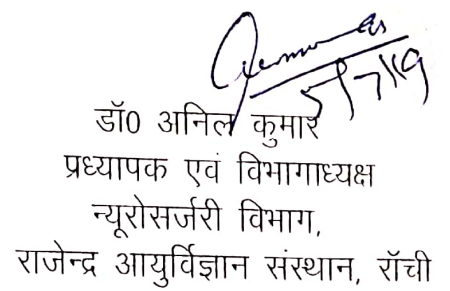 5/7/19
डॉ0 अनिल कुमार
प्रध्यापक एवं विभागाध्यक्ष
न्यूरोसर्जरी विभाग,
राजेन्द्र आयुर्विज्ञान संस्थान, रॉची